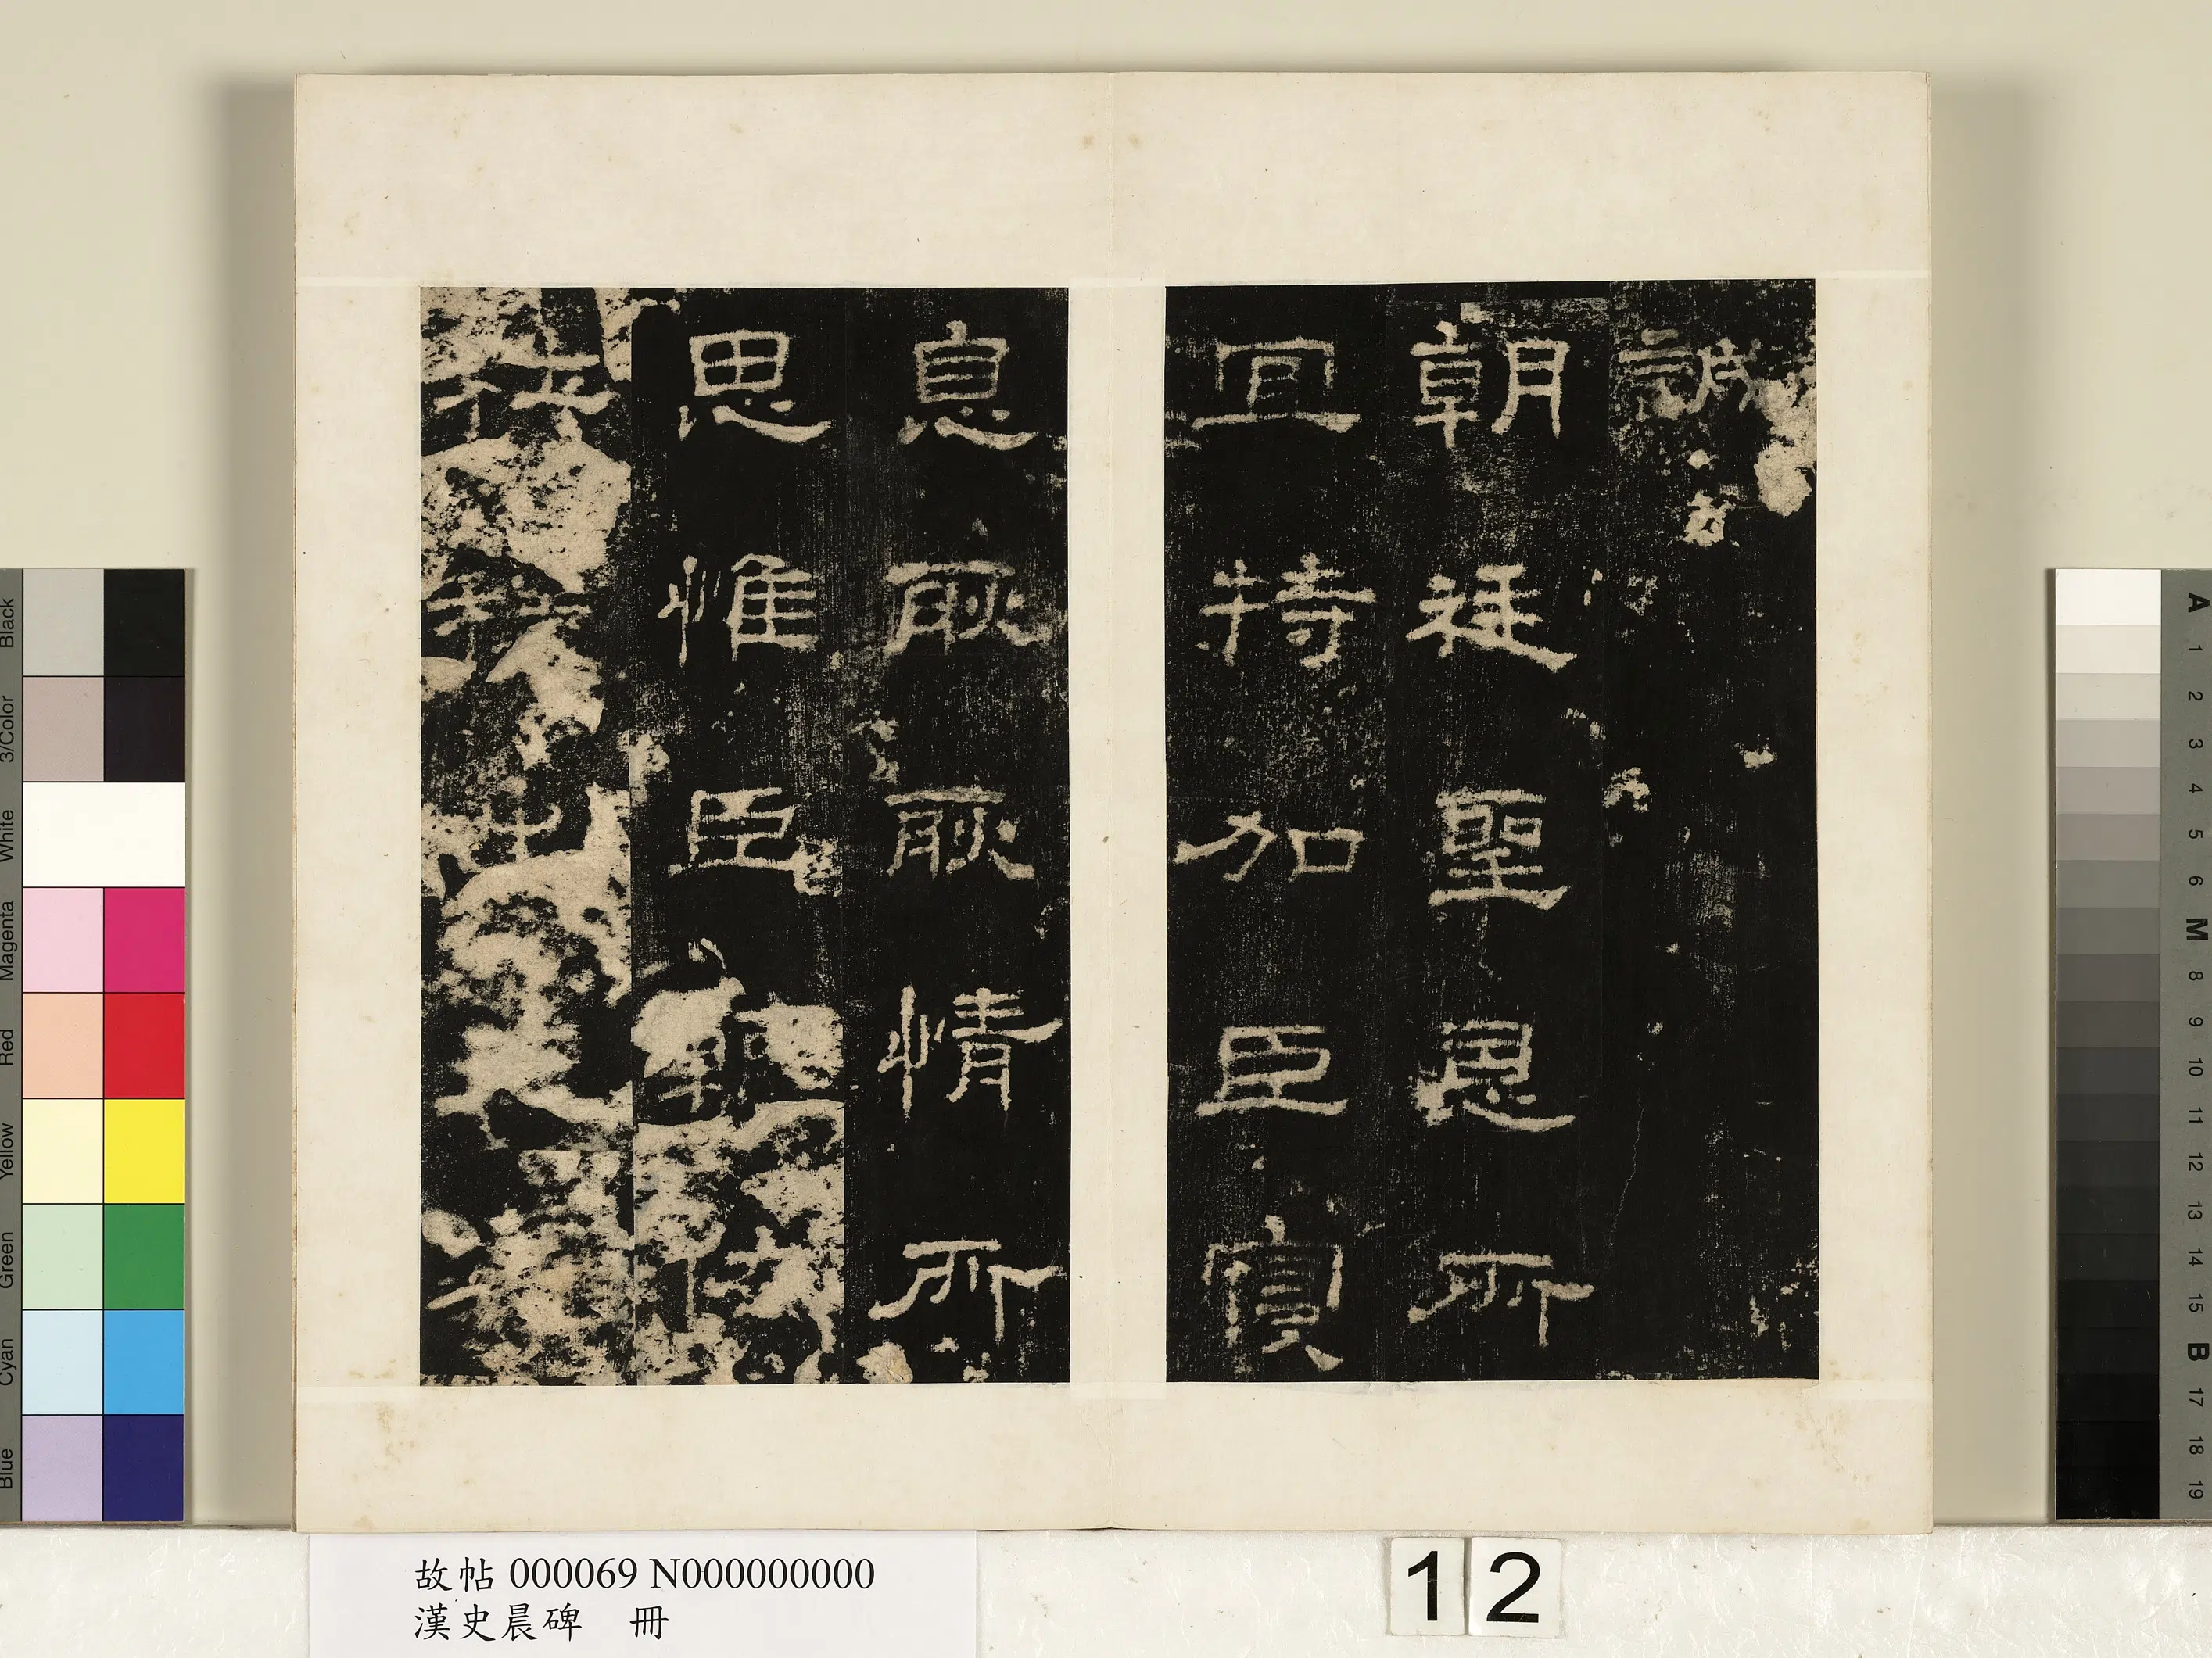 誠
朝廷聖恩所
宜特加臣寑
息耿耿情所
思惟臣輒依
社稷出王
故帖 000069 N000000000
漢史晨碑 冊
12
Black
3/Color
White
Magenta
Red
Yellow
Green
Cyan
Blue
A
1
2
3
4
5
6
M
8
9
10
11
12
13
14
15
B
17
18
19